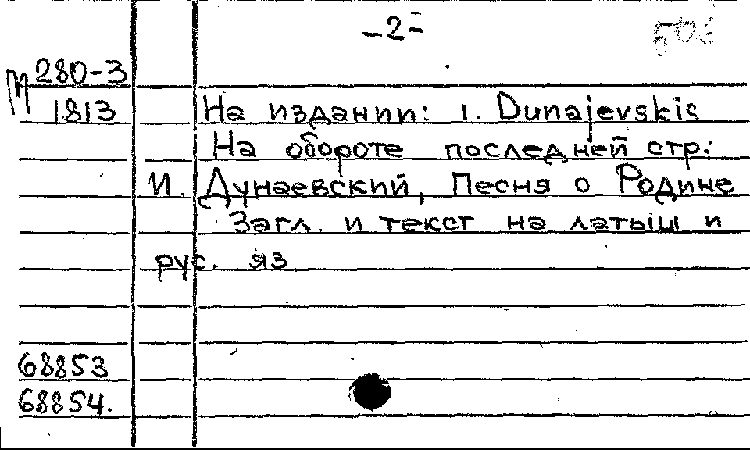 -2-
М 280-3
1813 На издании: I. Dunajevskis
На обороте последней стр:
И. Дунаевский, Песня о Родине
Загл. и текст на латыш и
рус. яз
68853
68854.